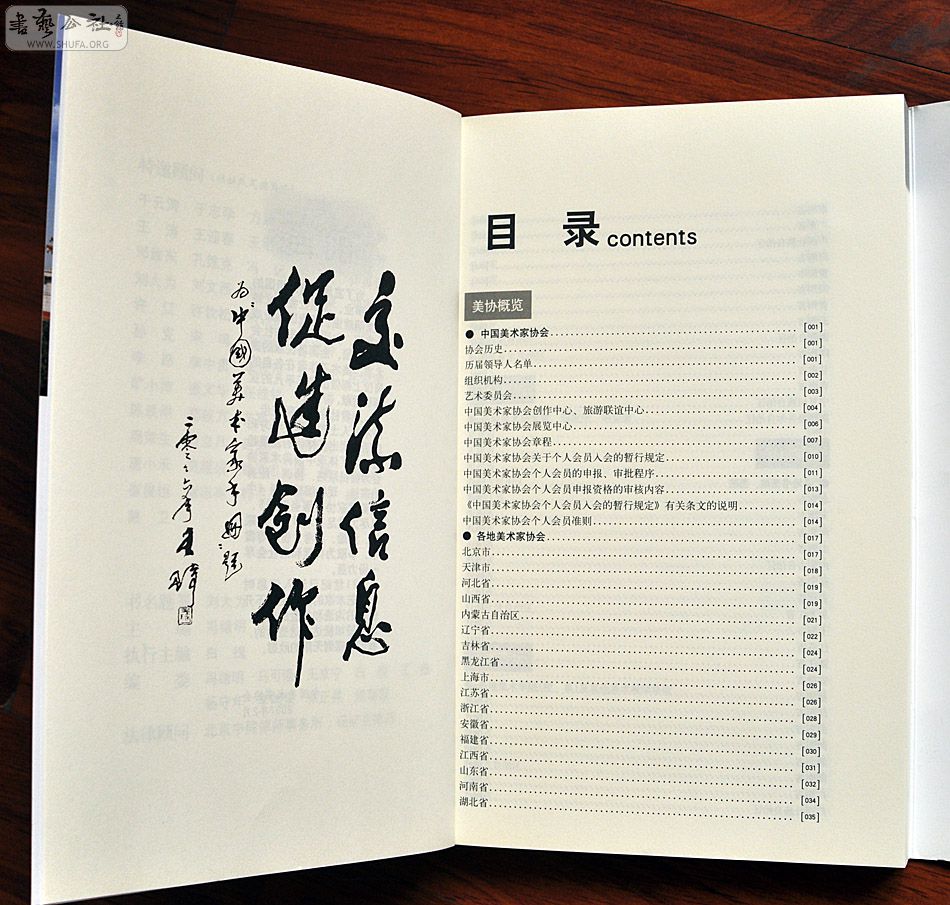 書藝公社
WWW.SHUFA.ORG
交流信息
促進創作
为中國美术家手册题
二零零六年
目 录 contents
美协概览
● 中国美术家协会 [001]
协会历史 [001]
历届领导人名单 [001]
组织机构 [002]
艺术委员会 [003]
中国美术家协会创作中心、旅游联谊中心 [004]
中国美术家协会展览中心 [006]
中国美术家协会章程 [007]
中国美术家协会关于个人会员入会的暂行规定 [010]
中国美术家协会个人会员的申报、审批程序 [011]
中国美术家协会个人会员申报资格的审核内容 [013]
《中国美术家协会个人会员入会的暂行规定》有关条文的说明 [014]
中国美术家协会个人会员准则 [014]
● 各地美术家协会 [017]
北京市 [017]
天津市 [018]
河北省 [019]
山西省 [019]
内蒙古自治区 [021]
辽宁省 [022]
吉林省 [024]
黑龙江省 [024]
上海市 [026]
江苏省 [026]
浙江省 [028]
安徽省 [029]
福建省 [030]
江西省 [031]
山东省 [032]
河南省 [034]
湖北省 [035]